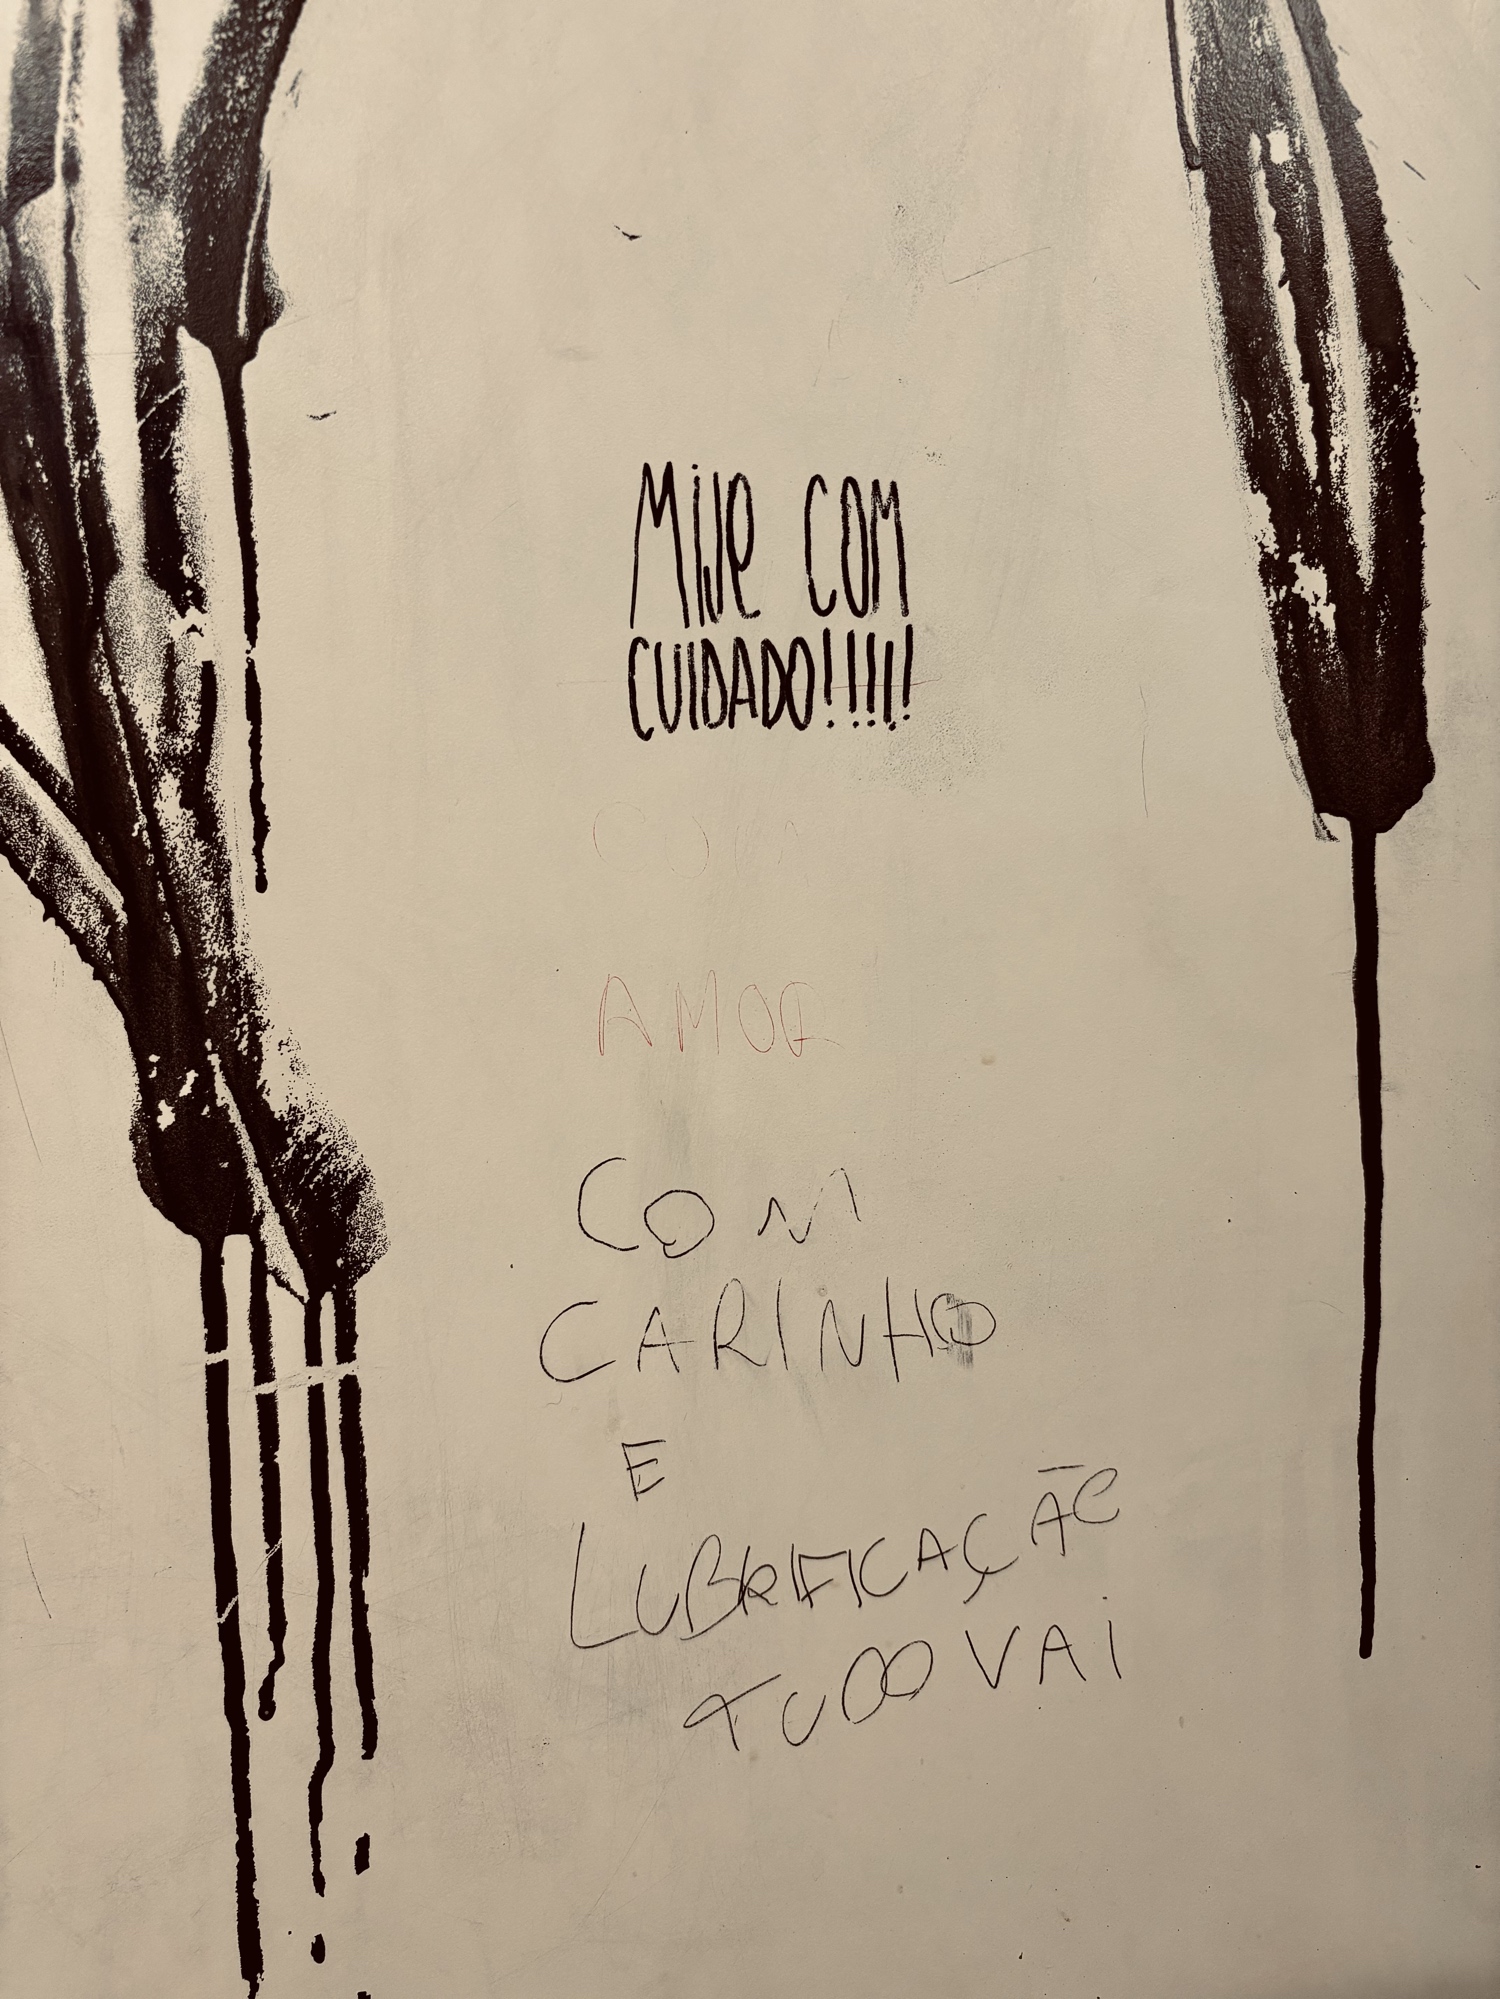 MiJe COM
CUIDADO!!!!!
COM
AMOR
COM
CARINHO
E
LUBRIFICAÇÃO
TUDO VAi